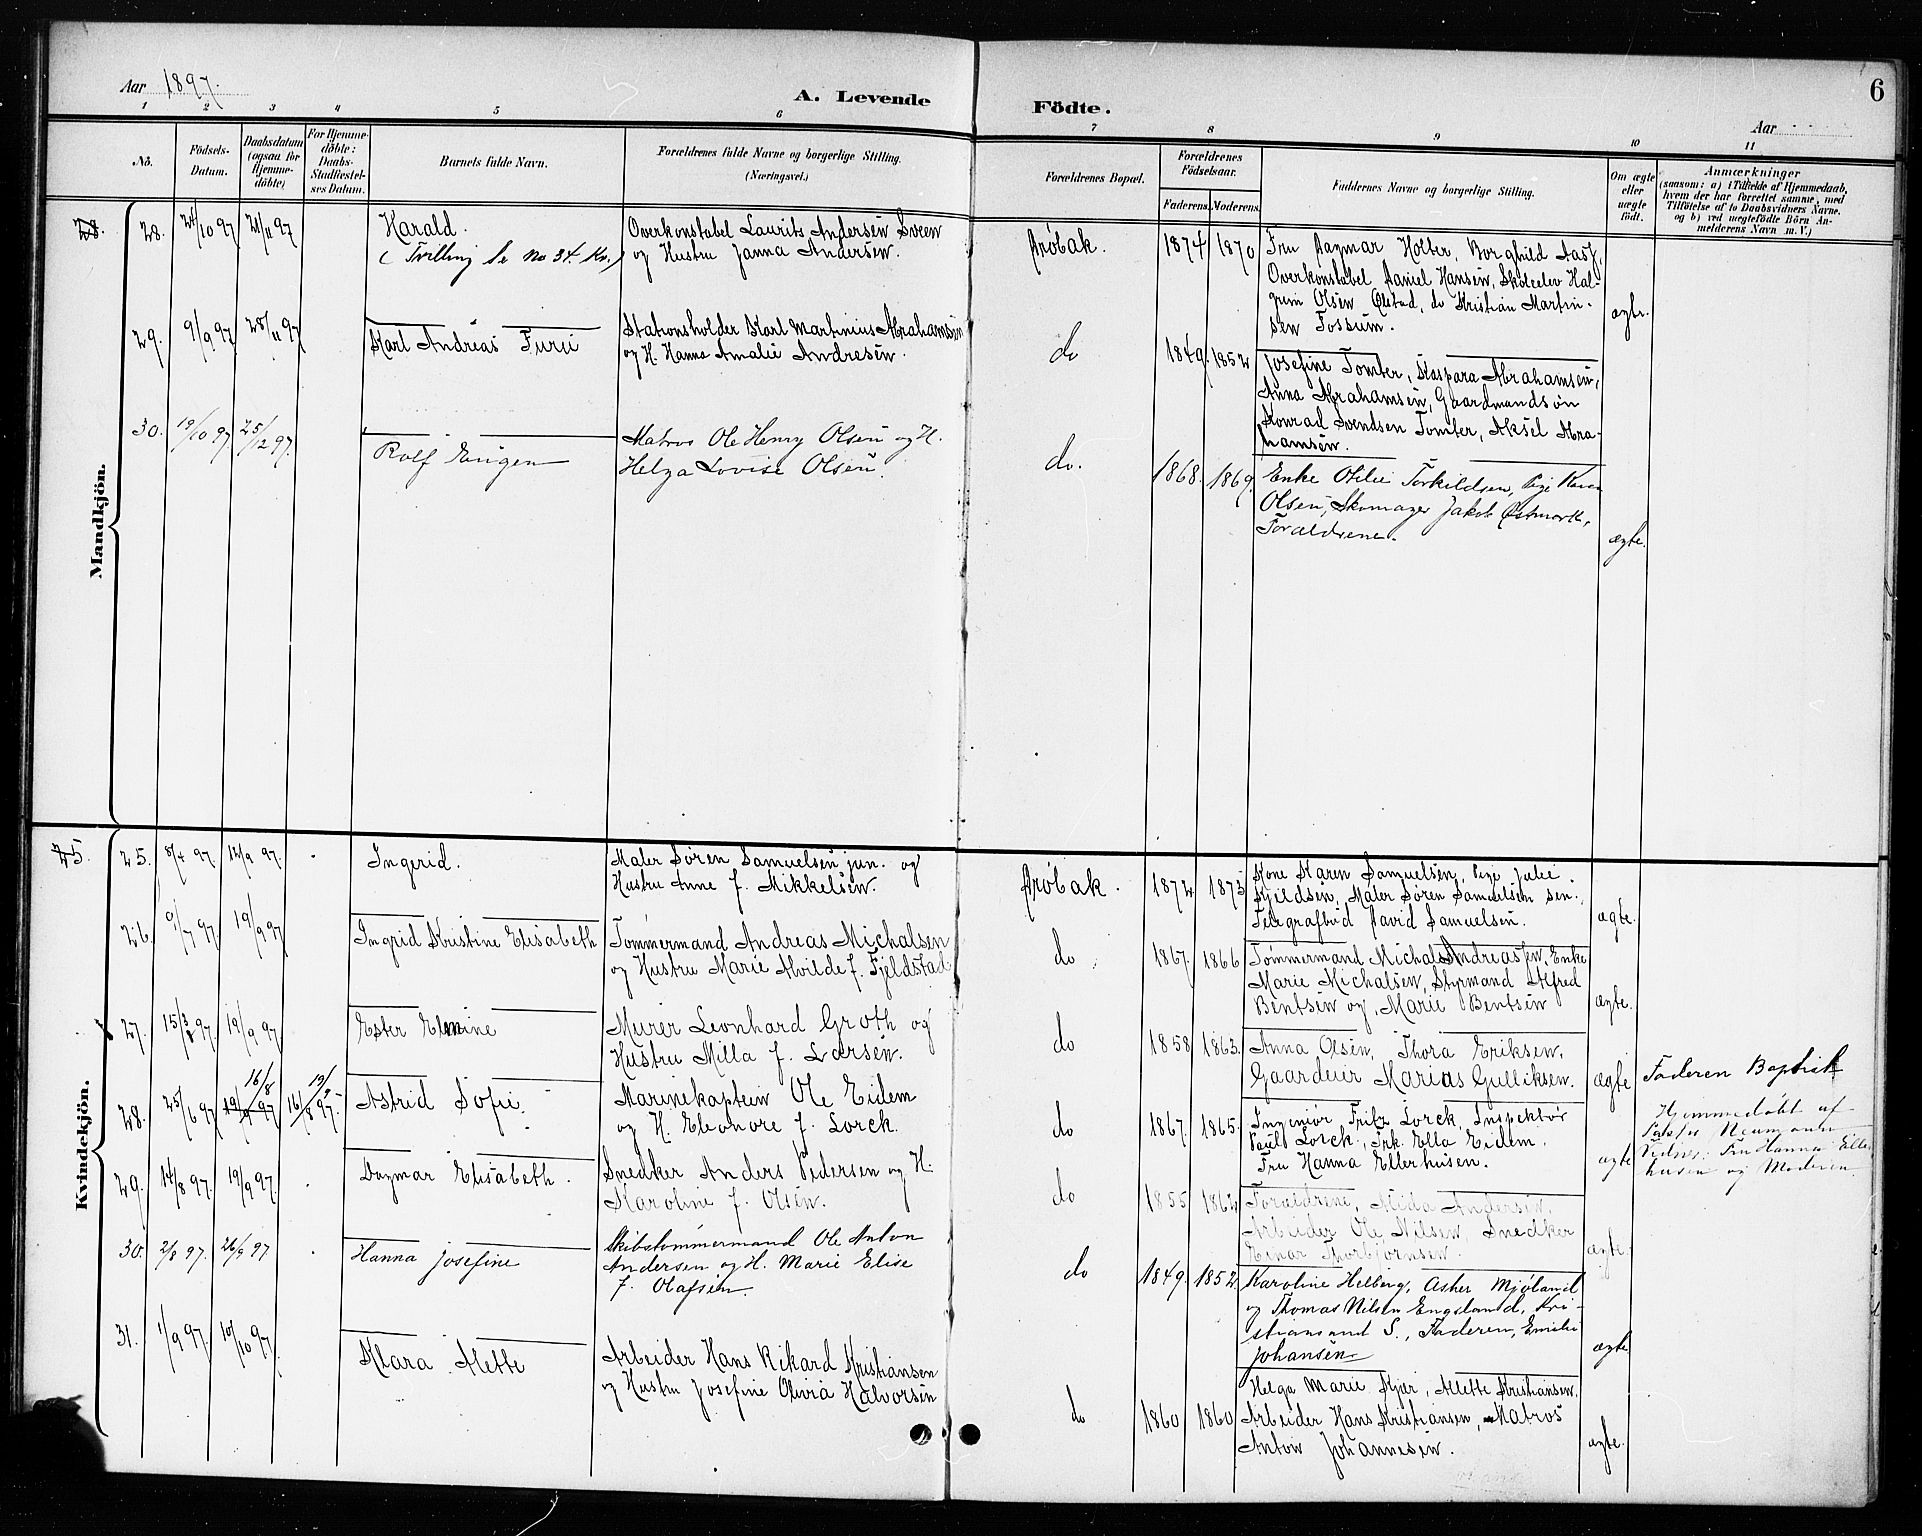 6
Aar 1897.
A. Levende Födte.
Aar
1 2 3 4 5 6 7 8 9 10 11
No.
Födsels-Datum.
Daabsdatum (ogsaa for Hjemmedöbte)
For Hjemmedöbte: Daabs-Stadfæstelses Datum.
Barnets fulde Navn.
Forældrenes fulde Navne og borgerlige Stilling.
(Næringsvei.)
Forældrenes Bopæl.
Forældrenes Födselsaar.
Faderens. Moderens.
Faddernes Navne og borgerlige Stilling.
Om ægte eller uægte födt.
Anmærkninger
(saasom: a) i Tilfælde af Hjemmedaab,
hvem der har forrettet samme, med
Tilföielse af to Daabsvidners Navne.
og b) ved uægtefödte Börn An-
melderens Navn m. V.)
Mandkjön.
28. 28. 24/10 97 21/11 97
Harald.
(Tvilling se No 34. Kv.)
Overkonstabel Laurits Andersen Sveen
og Hustru Janna Andersen.
Drøbak. 1874 1870
Fru Dagmar Holter, Borghild Aas,
Overkonstabel Daniel Hansen, Skoleelev Hal-
grim Olsen Ølstad, do Kristian Martin-
sen Fossum.
ægte.
29. 9/9 97 28/11 97
Karl Andreas Furu
Stationsholder Karl Martinius Abrahamsen
og H. Hanna Amalie Andresen.
do 1849. 1852
Josefine Tomter, Kaspara Abrahamsen,
Anna Abrahamsen, Gaardmandsøn
Konrad Svendsen Tomter, Aksel Abra-
hamsen.
30. 19/10 97 25/12 97.
Rolf Eugen
Matros Ole Henry Olsen og H.
Helga Lovise Olsen.
do. 1868. 1869.
Enke Otilie Torkildsen, Pige Karen
Olsen, Skomager Jakob Østmark,
Forældrene.
ægte.
Kvindekjön.
25. 25. 8/4 97. 12/9 97.
Ingerid.
Maler Søren Samuelsen jun. og
Hustru Anne f. Mikkelsen.
Drøbak. 1872 1873
Kone Karen Samuelsen, Pige Julie
Kjeldsen, Maler Søren Samuelsen sen.,
Telegrafbud David Samuelsen.
ægte.
26. 9/7 97 19/9 97
Ingrid Kristine Elisabeth
Tømmermand Andreas Michalsen
og Hustru Marie Alvilde f. Fjeldstad
do 1867. 1866
Tømmermand Michal Andreassen, Enke
Marie Michalsen, Styrmand Alfred
Bentsen og Marie Bentsen
ægte.
27. 15/3 97 19/9 97
Ester Elmine
Murer Leonhard Groth og
Hustru Milla f. Larsen.
do 1858 1863.
Anna Olsen, Thora Eriksen,
Gaardeier Marias Gulliksen.
ægte
Faderen Baptist
28. 25/6 97 16/8 19/9 97 19/9 16/8 97.
Astrid Sofie.
Marinekaptein Ole Eidem
og H. Eleonore f. Lorck.
do 1867. 1865.
Ingeniør Fritz Lorck, Inspektør
Paul Lorck, Frk. Ella Eidem.
Fru Hanna Ellerhusen.
ægte
Hjemmedøbt af
Neumann
Vidner: Fru Hanna Eller-
husen og Moderen.
29. 14/8 97. 19/9 97.
Dagmar Elisabeth.
Snedker Anders Pedersen og H.
Karoline f. Olsen.
do 1855 1862
Forældrene, Alida Andersen,
Arbeider Ole Nilsen, Snedker
Einar Thorbjørnsen.
ægte.
30. 2/8 97. 26/9 97
Hanna Josefine
Skibstømmermand Ole Anton
Andersen og H. Marie Elise
f. Olafsen.
do 1849. 1852.
Karoline Helberg, Asher Mjøland
og Thomas Nilsen Engsland, Kri-
stiansand S., Faderen, Emilie
Johansen
ægte
31. 1/9 97. 10/10 97.
Klara Alette
Arbeider Hans Rikard Kristiansen
og Hustru Josefine Olivia Halvorsen
do 1860 1860
Helga Marie Kjær, Alette Kristiansen.
Arbeider Hans Kristiansen, Matros
Anton Johannesen.
ægte.